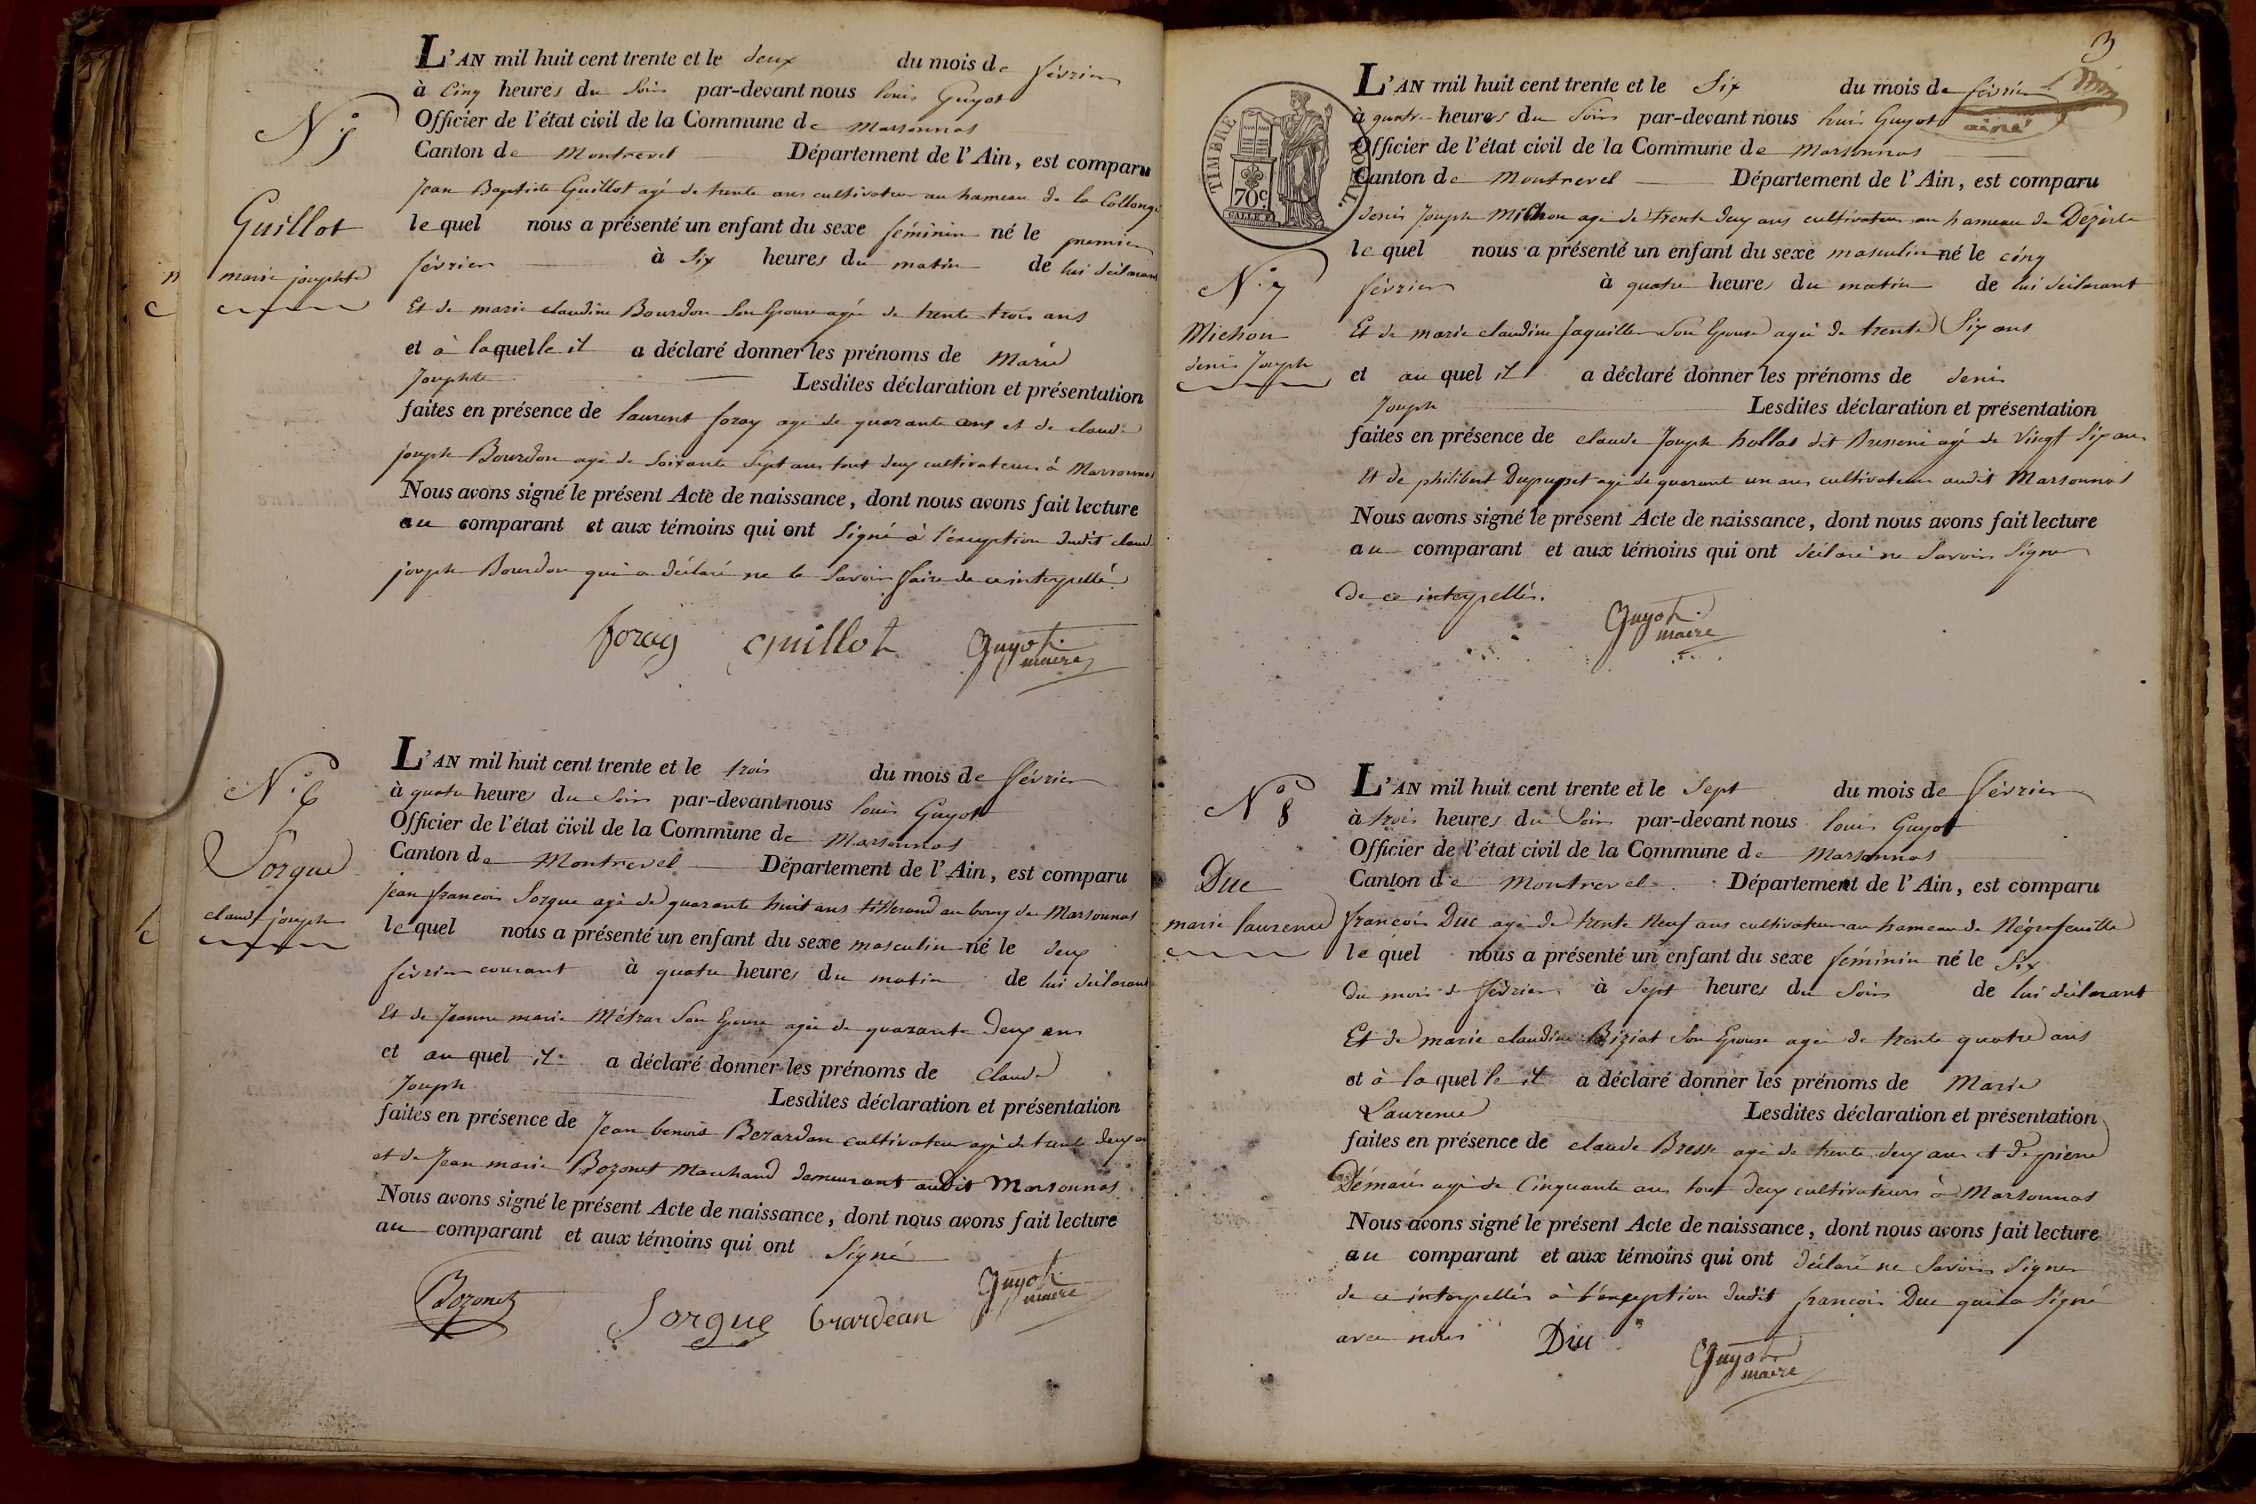 N.° 5
Guillot
marie josephte
L'AN mil huit cent trente et le deux du mois de février
à cinq heures du soir par-devant nous louis Guyot
Officier de l'état civil de la Commune de Marsonnas
Canton de Montrevel Département de l'Ain, est comparu
Jean Baptiste Guillot agé de trente ans cultivateur au hameau de la Collonge
le quel nous a présenté un enfant du sexe féminin né le premier
février à six heures du matin de lui déclarant
Et de marie claudine Bourdon son épouse agée de trente trois ans
et à laquelle il a déclaré donner les prénoms de Marie
Josephte Lesdites déclaration et présentation
faites en présence de laurent foray agé de quarante ans et de claude
joseph Bourdon agé de soixante sept ans tout deux cultivateurs à Marsonnas
Nous avons signé le présent Acte de naissance, dont nous avons fait lecture
au comparant et aux témoins qui ont signé à l'exception dudit claude
joseph Bourdon qui a déclaré ne le savoir faire de ce interpellé
foray Guillot Guyot
maire
N.° 6
Sorgue
claude joseph
L'AN mil huit cent trente et le trois du mois de février
à quatre heures du soir par-devant nous louis Guyot
Officier de l'état civil de la Commune de Marsonnas
Canton de Montrevel Département de l'Ain, est comparu
jean françois Sorgue agé de quarante huit ans tisserand au bourg de Marsonnas
le quel nous a présenté un enfant du sexe masculin né le deux
février courant à quatre heures du matin de lui déclarant
Et de Jeanne marie Métras son épouse agée de quarante deux ans
et au quel il a déclaré donner les prénoms de Claude
Joseph Lesdites déclaration et présentation
faites en présence de Jean benoit Berardan cultivateur agé de trente deux ans
et de Jean marie Bozonet Marchand demeurant audit Marsonnas
Nous avons signé le présent Acte de naissance, dont nous avons fait lecture
au comparant et aux témoins qui ont signé
Bozonet Sorgue Guyot
maire
3
TIMBRE ROYAL
70c
L'AN mil huit cent trente et le six du mois de février
à quatre heures du soir par-devant nous louis Guyot
ainé
Officier de l'état civil de la Commune de Marsonnas
Canton de Montrevel Département de l'Ain, est comparu
denis Joseph Michon agé de trente deux ans cultivateur au hameau de
le quel nous a présenté un enfant du sexe masculin né le cinq
N.° 7
Michon
denis Joseph
février à quatre heures du matin de lui déclarant
Et de marie claudine Jaquillon son épouse agée de trente six ans
et au quel il a déclaré donner les prénoms de denis
Joseph Lesdites déclaration et présentation
faites en présence de claude Joseph hollas dit agé de vingt six ans
Et de philibert Dupupet agé de quarante un ans cultivateurs audit Marsonnas
Nous avons signé le présent Acte de naissance, dont nous avons fait lecture
au comparant et aux témoins qui ont déclaré ne savoir signer
de ce interpellés.
Guyot
maire
N° 8
Duc
marie laurence
L'AN mil huit cent trente et le sept du mois de février
à trois heures du soir par-devant nous louis Guyot
Officier de l'état civil de la Commune de Marsonnas
Canton de Montrevel Département de l'Ain, est comparu
françois Duc agé de trente neuf ans cultivateur au hameau de Négrefeuille
le quel nous a présenté un enfant du sexe féminin né le six
du mois de février à sept heures du soir de lui déclarant
Et de marie claudine Biziat son épouse agée de trente quatre ans
et à la quelle il a déclaré donner les prénoms de Marie
Laurence Lesdites déclaration et présentation
faites en présence de claude Bresse agé de trente deux ans et de pierre
Démaris agé de cinquante ans tout deux cultivateurs à Marsonnas
Nous avons signé le présent Acte de naissance, dont nous avons fait lecture
au comparant et aux témoins qui ont déclaré ne savoir signer
de ce interpellés à l'exception dudit françois Duc qui a signé
avec nous Duc Guyot
maire